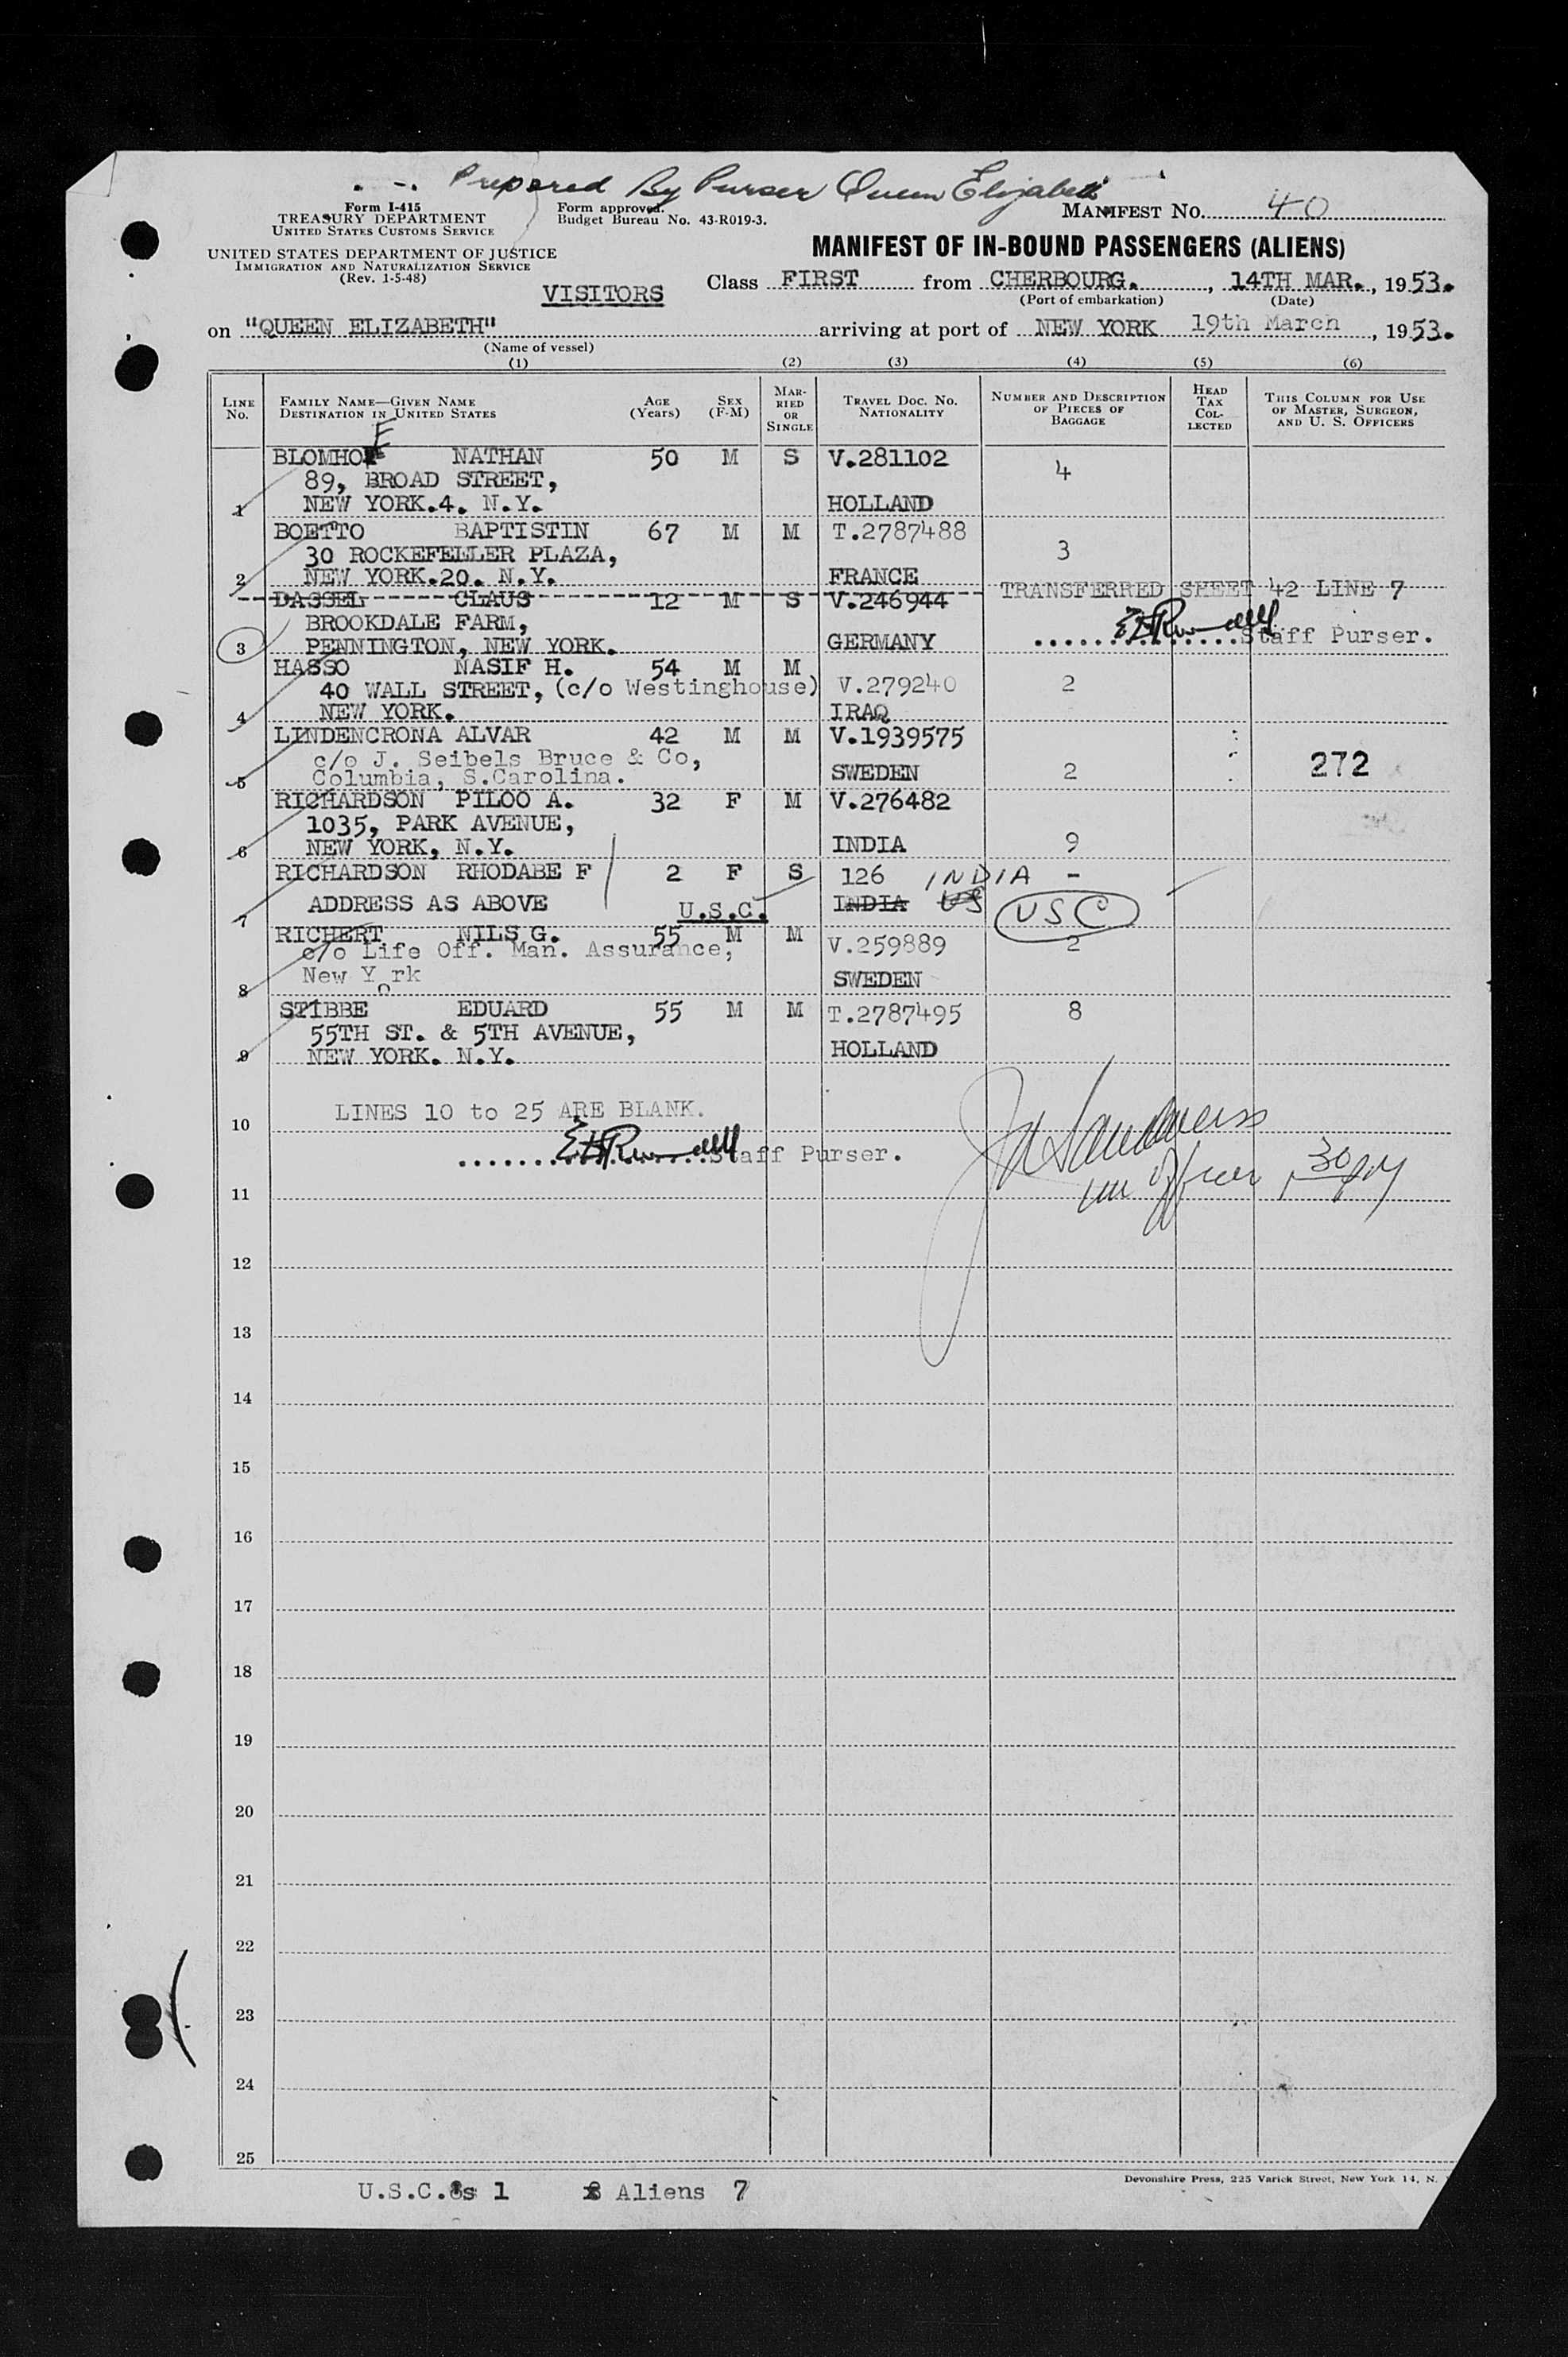 Prepared By Purser Queen Elizabeth
Form I-415
TREASURY DEPARTMENT
UNITED STATES CUSTOMS SERVICE
Form approved.
Budget Bureau No. 43-R019-3.
MANIFEST NO. 40
UNITED STATES DEPARTMENT OF JUSTICE
IMMIGRATION AND NATURALIZATION SERVICE
(Rev. 1-5-48)
MANIFEST OF IN-BOUND PASSENGERS (ALIENS)
VISITORS
Class FIRST from CHERBOURG., 14TH MAR., 1953.
(Port of embarkation) (Date)
on "QUEEN ELIZABETH" arriving at port of NEW YORK 19th March, 1953.
(Name of vessel)
(1) (2) (3) (4) (5) (6)
LINE NO. FAMILY NAME—GIVEN NAME DESTINATION IN UNITED STATES AGE (Years) SEX (F-M) MARRIED OR SINGLE TRAVEL DOC. NO. NATIONALITY NUMBER AND DESCRIPTION OF PIECES OF BAGGAGE HEAD TAX COLLECTED THIS COLUMN FOR USE OF MASTER, SURGEON, AND U. S. OFFICERS
F
BLOMHOF NATHAN 50 M S V.281102 4
89, BROAD STREET,
1 NEW YORK.4. N.Y. HOLLAND
BOETTO BAPTISTIN 67 M M T.2787488 3
30 ROCKEFELLER PLAZA,
2 NEW YORK.20. N.Y. FRANCE
DASSEL CLAUS 12 M S V.246944 TRANSFERRED SHEET 42 LINE 7
BROOKDALE FARM,
3 PENNINGTON, NEW YORK. GERMANY Staff Purser.
HASSO NASIF H. 54 M M
40 WALL STREET, (c/o Westinghouse) V.279240 2
4 NEW YORK. IRAQ
LINDENCRONA ALVAR 42 M M V.1939575
c/o J. Seibels Bruce & Co,
5 Columbia, S.Carolina. SWEDEN 2 272
RICHARDSON PILOO A. 32 F M V.276482
1035, PARK AVENUE,
6 NEW YORK, N.Y. INDIA 9
RICHARDSON RHODABE F 2 F S 126 INDIA -
7 ADDRESS AS ABOVE U.S.C. INDIA US USC
RICHERT NILS G. 55 M M
c/o Life Off. Man. Assurance, V.259889 2
8 New York SWEDEN
STIBBE EDUARD 55 M M T.2787495 8
55TH ST. & 5TH AVENUE,
9 NEW YORK. N.Y. HOLLAND
10 LINES 10 to 25 ARE BLANK.
Staff Purser.
11
12
13
14
15
16
17
18
19
20
21
22
23
24
25
Devonshire Press, 225 Varick Street, New York 14, N.
U.S.C.'s 1 Aliens 7